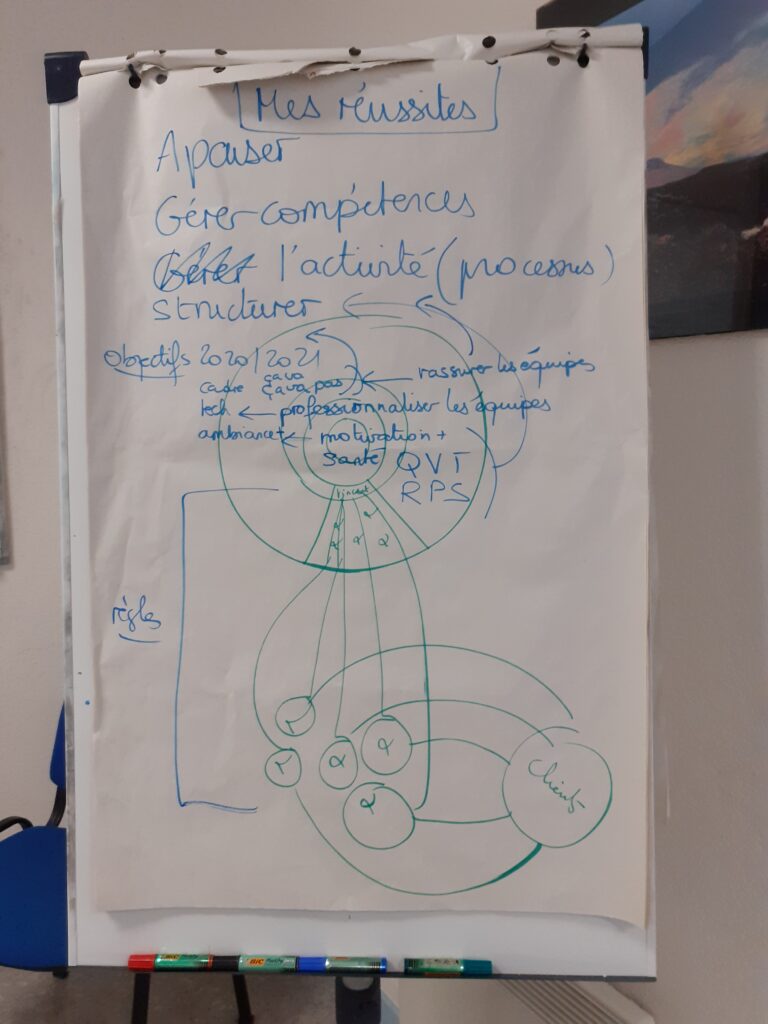 Mes réussites
Apaiser
Gérer compétences
Gérer l'activité (processus)
Structurer
Objectifs 2020/2021
cadre ça va ça va pas ← rassurer les équipes
tech ← professionnaliser les équipes
ambiance ← motivation +
Santé QVT
RPS
règles
Clients
BIC
BIC